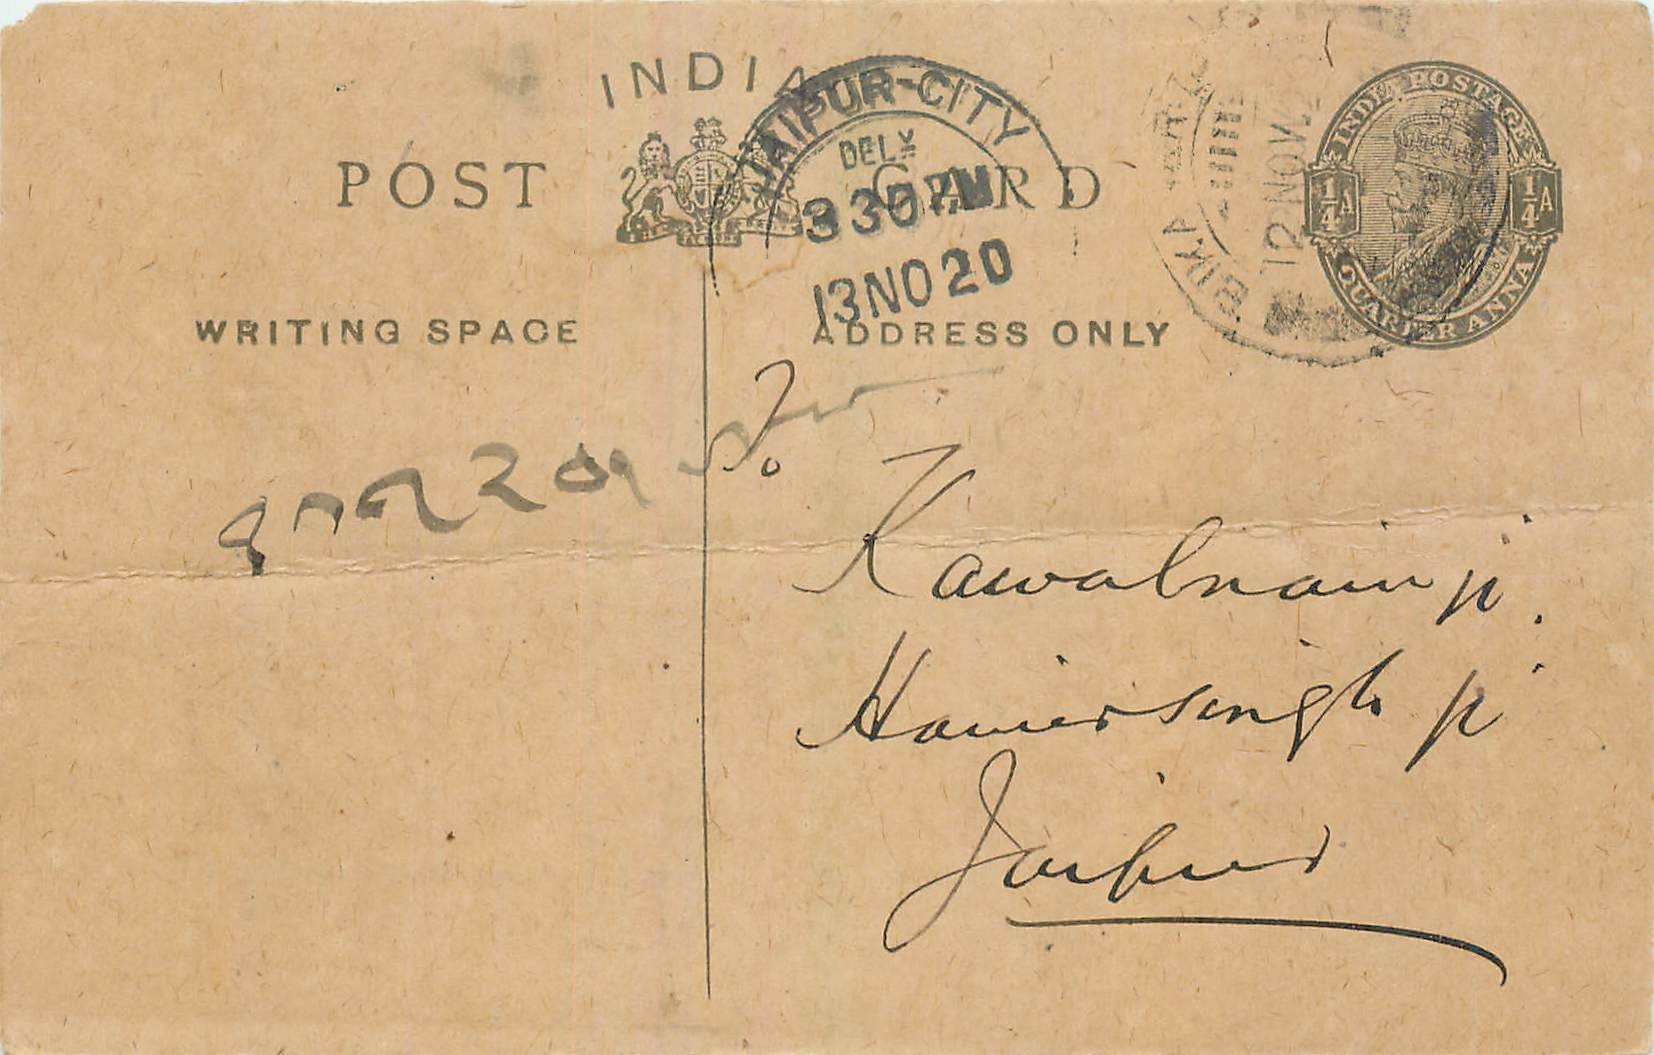 INDIA
POST CARD
WRITING SPACE
ADDRESS ONLY
JAIPUR-CITY
DELY
3 30 PM
13 NO 20
12 NOV.
INDIA POSTAGE
¼ A ¼ A
QUARTER ANNA
To
Kawalnain ji.
Hamirsingh ji
Jaipur